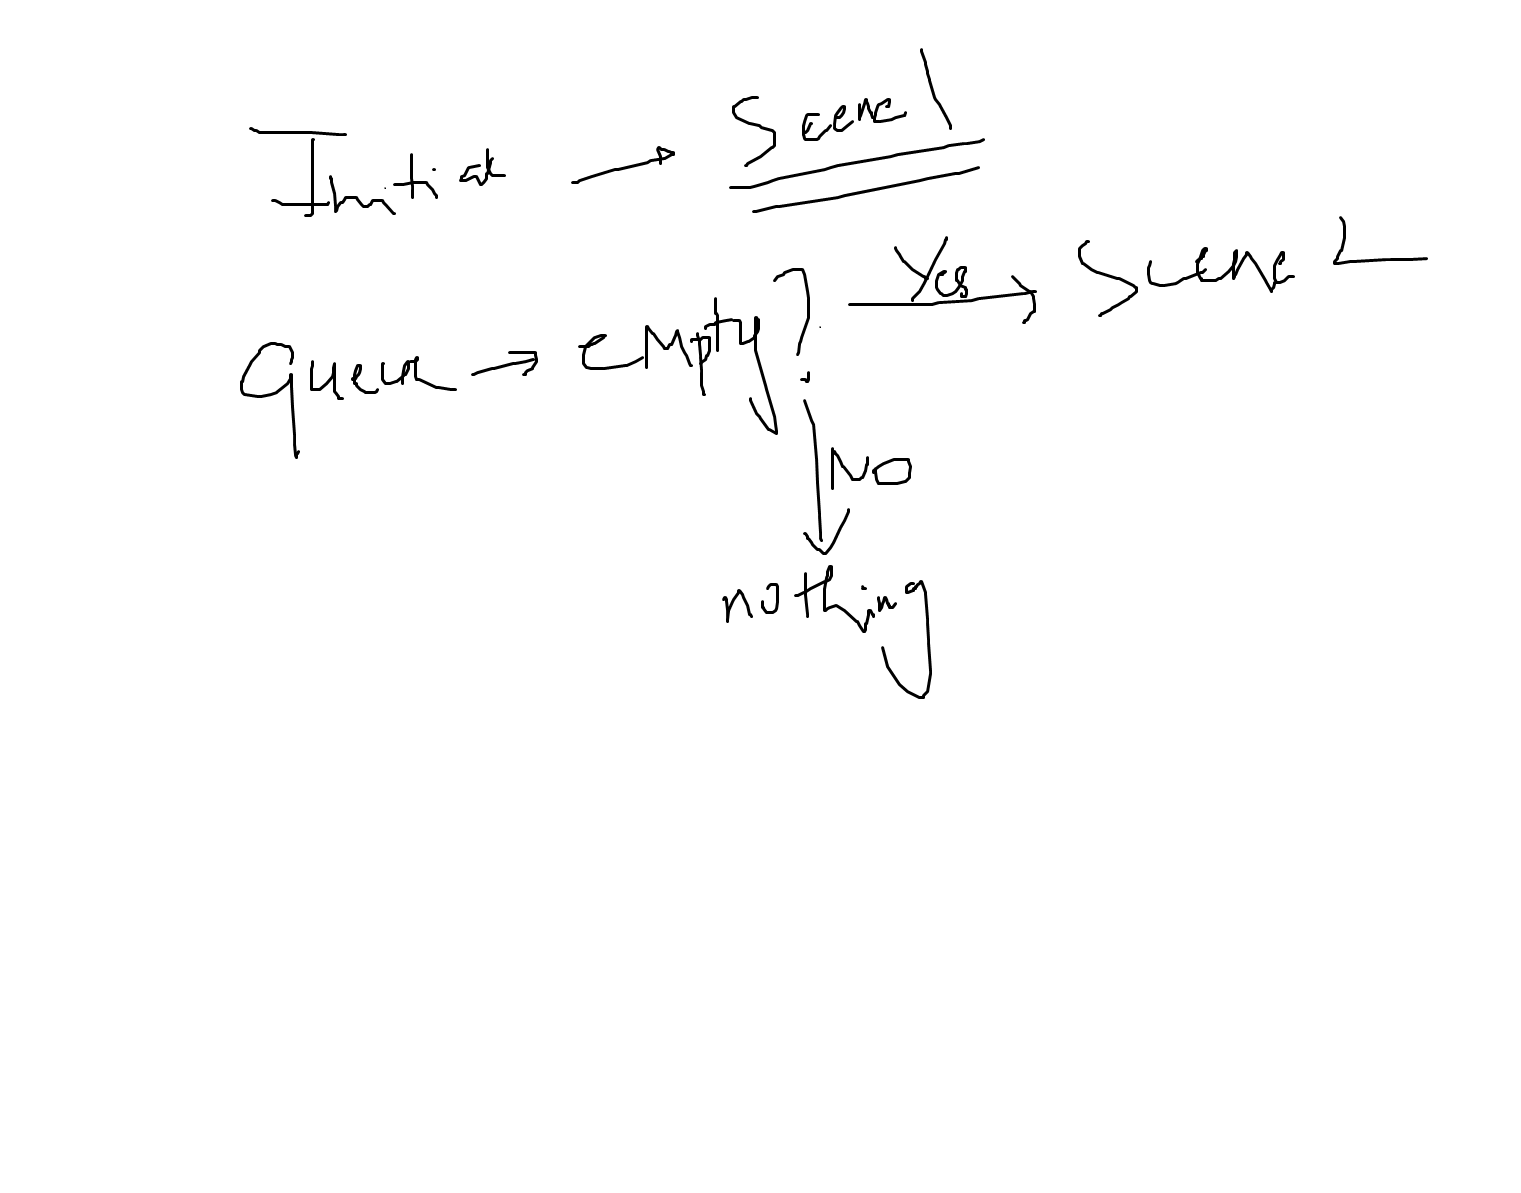 Initial → Scene 1
Queue → empty? Yes → Scene
No
nothing